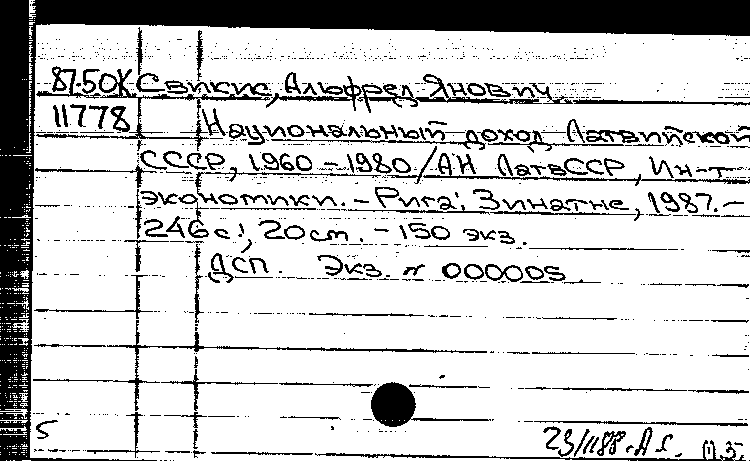 87-50К Свикис, Альфред Янович.
11778 Национальный доход Латвийской
СССР, 1960-1980/АН ЛатвССР, Ин-т
экономики. - Рига: Зинатне, 1987. -
246с.; 20 см. - 150 экз.
ДСП. Экз. № 000005.
5
23/1188